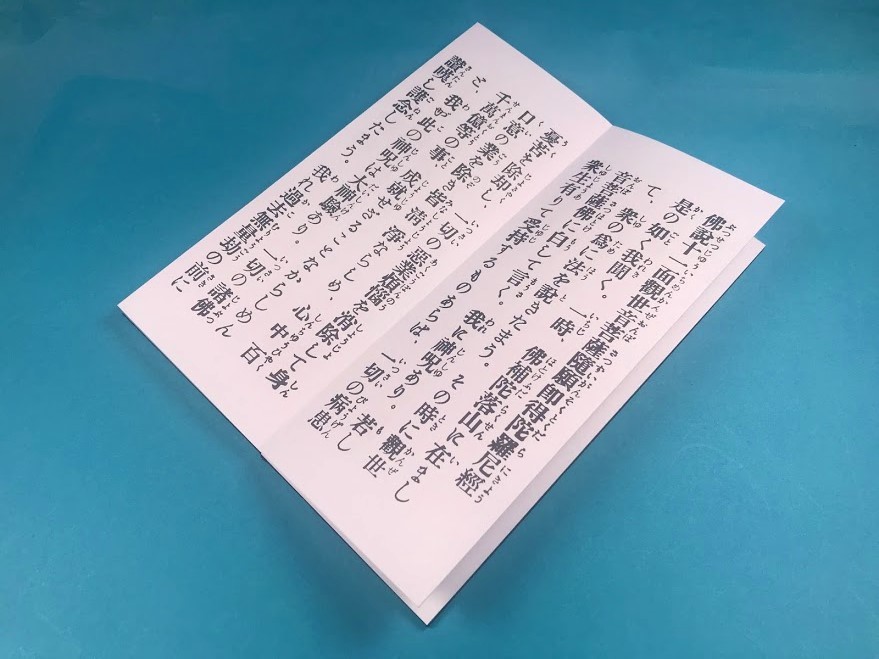 佛說十一面觀世音菩薩隨願卽得陀羅尼經
是の如く我聞く。一時、佛補陀落山に在まし
て、衆の爲に法を說きたまう。その時に觀世
音菩薩佛に白して言く。我に神呪あり。若し
衆生有りて受持するものあらば、一切の病患
憂苦を除却し、一切の惡業煩惱を消除して身
口意の業を除き、皆淸淨ならしめ、心中百
千萬億等の事、成就せざることなからしめん
と、我が此の神呪は大神驗あり。一切の諸佛
讚し護念したまう。我れ過去無量劫の前に